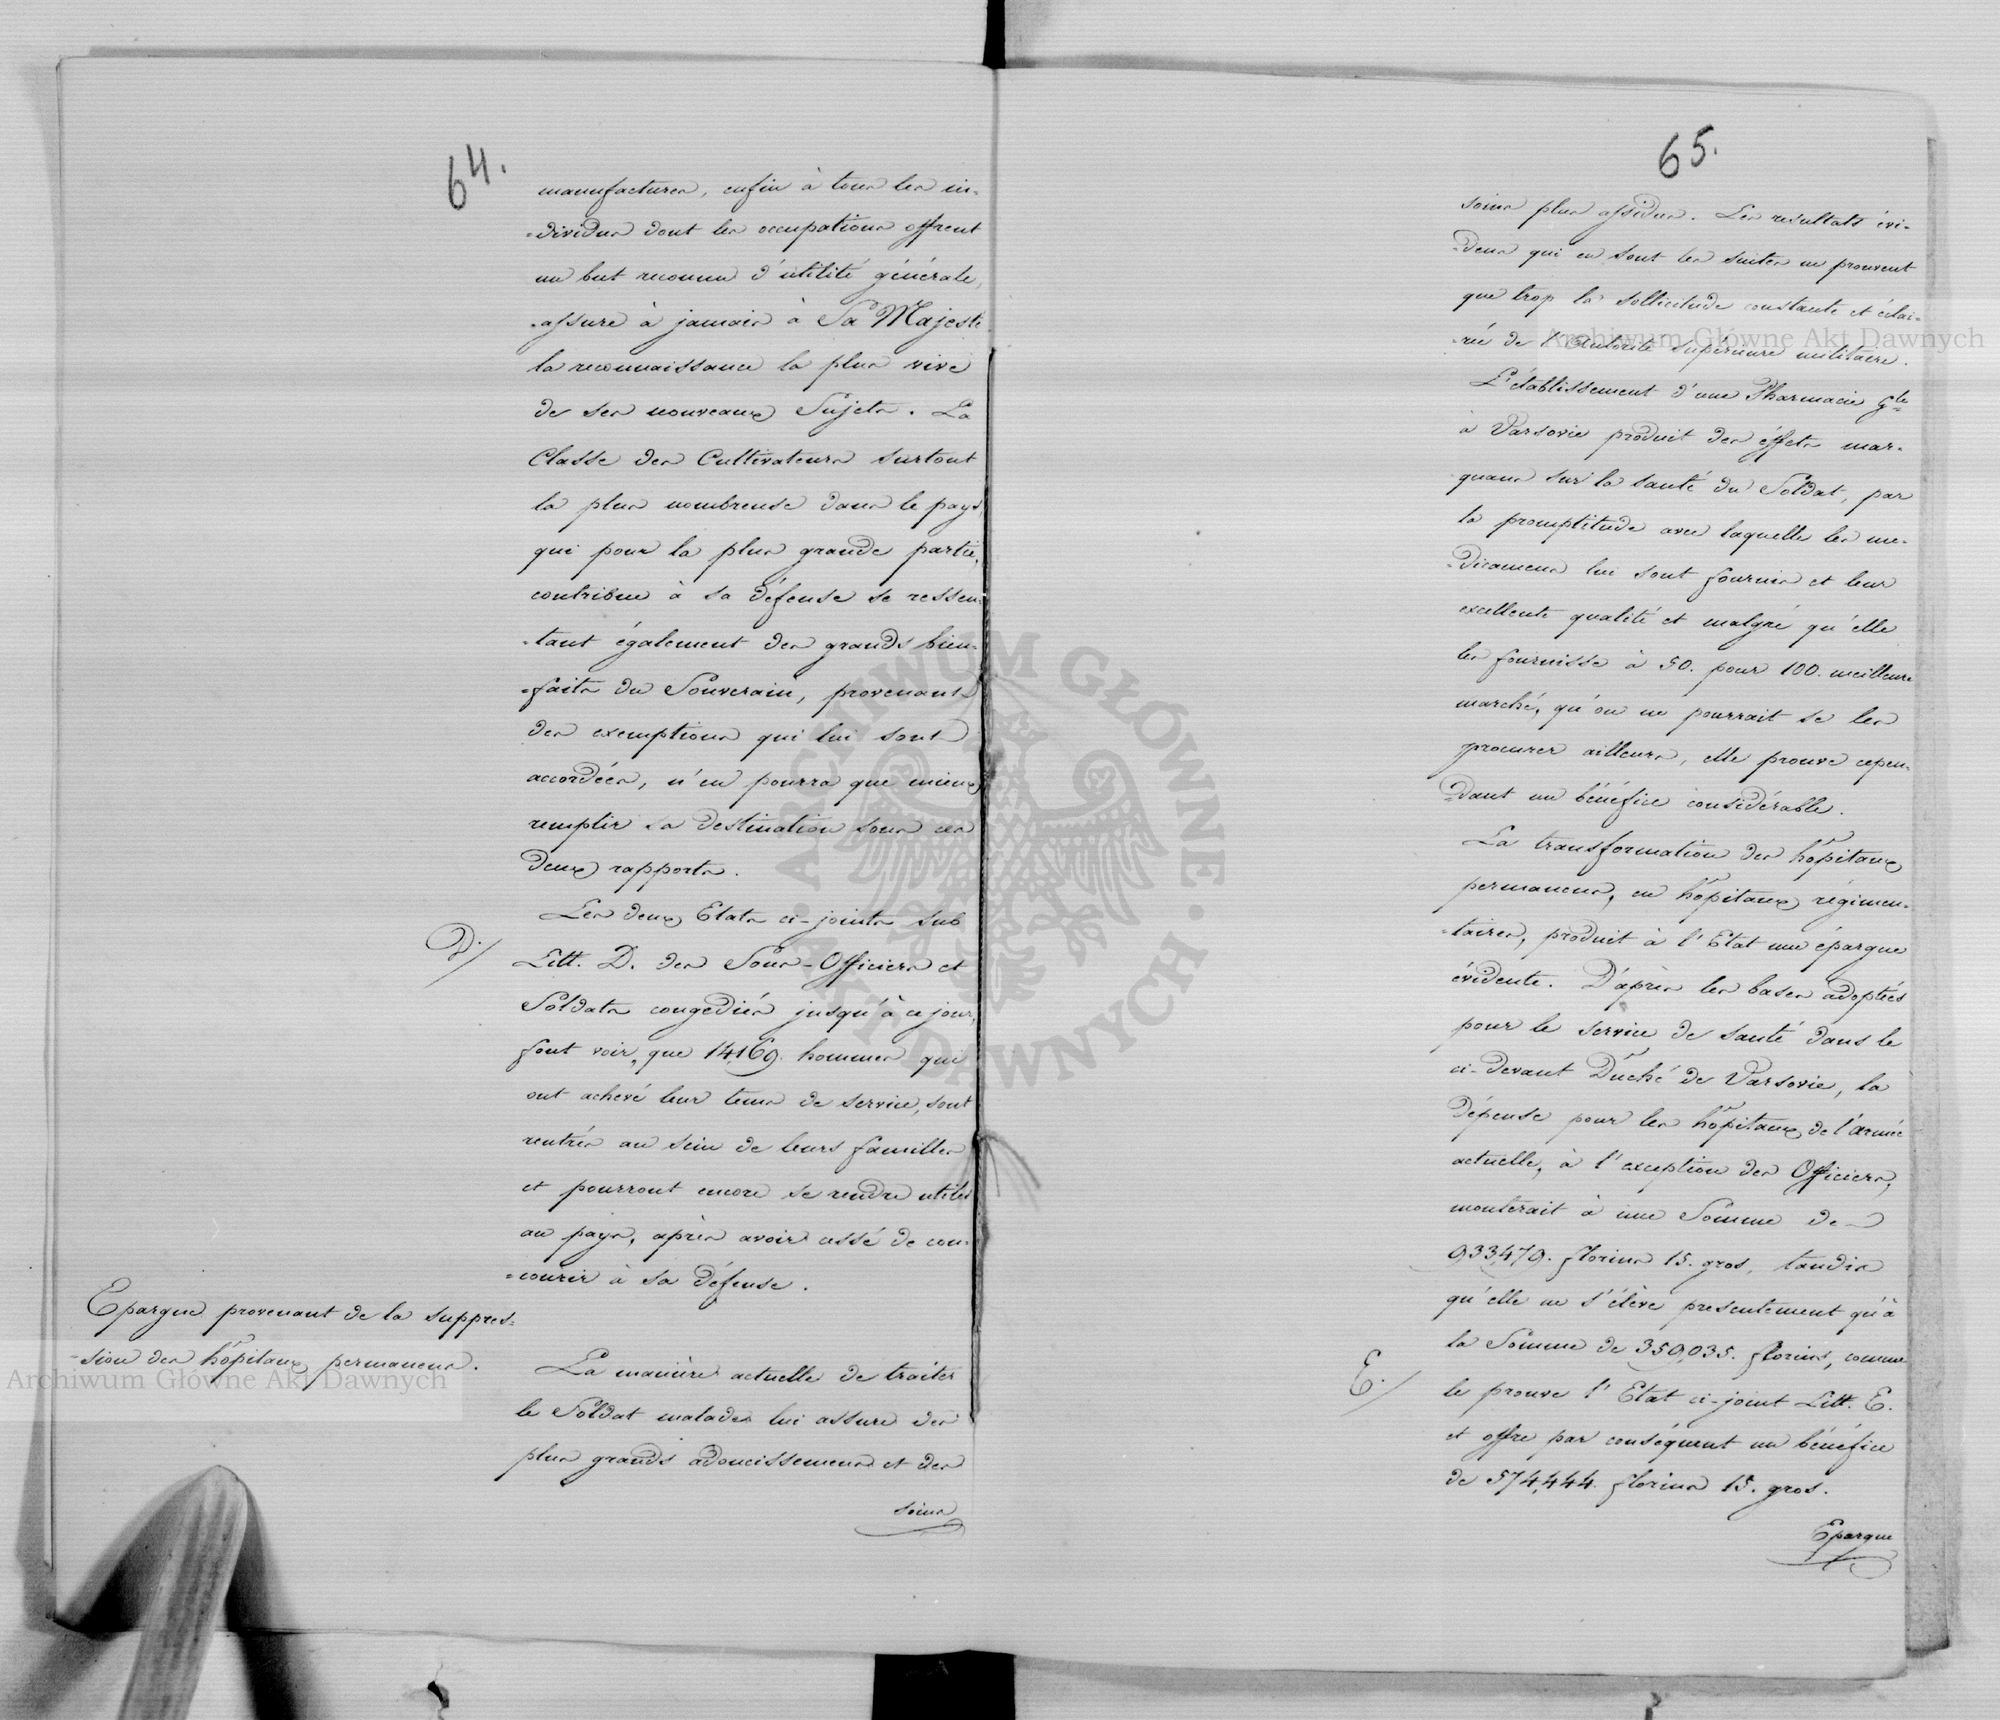 64.
manufactures, enfin à tous les in-
-dividus dont les occupations offrent
un but reconnu d'utilité générale,
assure à jamais à Sa Majesté
la reconnaissance la plus vive
de ses nouveaux Sujets. La
Classe des Cultivateurs surtout
la plus nombreuse dans le pays,
qui pour la plus grande partie,
contribue à sa défense se ressen-
-tant également des grands bien-
-faits du Souverain, provenant
des exemptions qui lui sont
accordées, n'en pourra que mieux
remplir sa destination sous ces
deux rapports.
Les deux Etats ci-joints sub
D./
Litt. D. des Sous-Officiers et
Soldats congediés jusqu'à ce jour,
font voir, que 14169. hommes qui
ont achevé leur tems de service, sont
rentrés au sein de leurs familles
et pourront encore se rendre utiles
au pays, après avoir cessé de con-
-courir à sa défense.
Epargne provenant de la suppres-
-sion des hôpitaux permanens.
La manière actuelle de traiter
le Soldat malade lui assure des
plus grands adoucissemens et des
soins
65.
soins plus assidus. Les resultats évi-
-dens qui en sont les suites ne prouvent
que trop la sollicitude constante et éclai-
-rée de l'Autorité supérieure militaire.
L'établissement d'une Pharmacie Gle
à Varsovie produit des éffets mar-
quans sur la santé du Soldat, par
la promptitude avec laquelle les me-
-dicamens lui sont fournis et leur
excellente qualité et malgré qu'elle
les fournisse à 50. pour 100. meilleure
marché, qu'on ne pourrait se les
procurer ailleurs, elle prouve cepen-
-dant un bénéfice considérable.
La transformation des hôpitaux
permanens, en hôpitaux régimen-
-taires, produit à l'Etat une épargne
évidente. D'après les bases adoptées
pour le service de santé dans le
ci-devant Duché de Varsovie, la
dépense pour les hôpitaux de l'armée
actuelle, à l'exception des Officiers,
monterait à une Somme de
933,479. florins 15. gros, tandis
qu'elle ne s'élève presentement qu'à
la Somme de 359,035. florins, comme
E./
le prouve l'Etat ci-joint Litt. E.
et offre par conséquent un bénéfice
de 574,444. florins 15. gros.
Epargne
Archiwum Główne Akt Dawnych
Archiwum Główne Akt Dawnych
ARCHIWUM GŁÓWNE AKT DAWNYCH